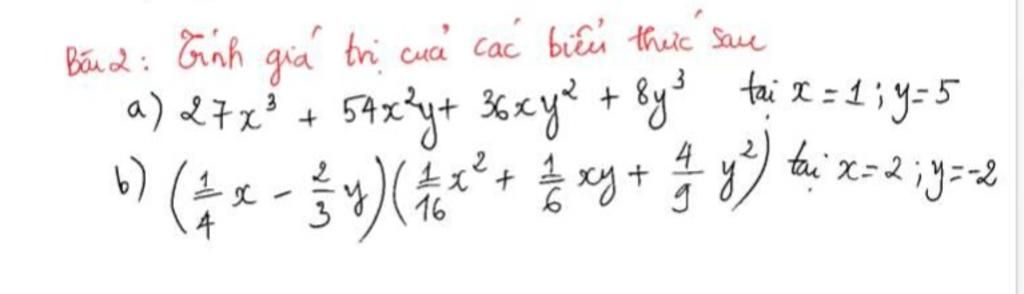 Bài 2: Tính giá trị của các biểu thức sau
a) 27x³ + 54x²y + 36xy² + 8y³ tại x = 1 ; y = 5
b) (1/4 x - 2/3 y)(1/16 x² + 1/6 xy + 4/9 y²) tại x = 2 ; y = -2